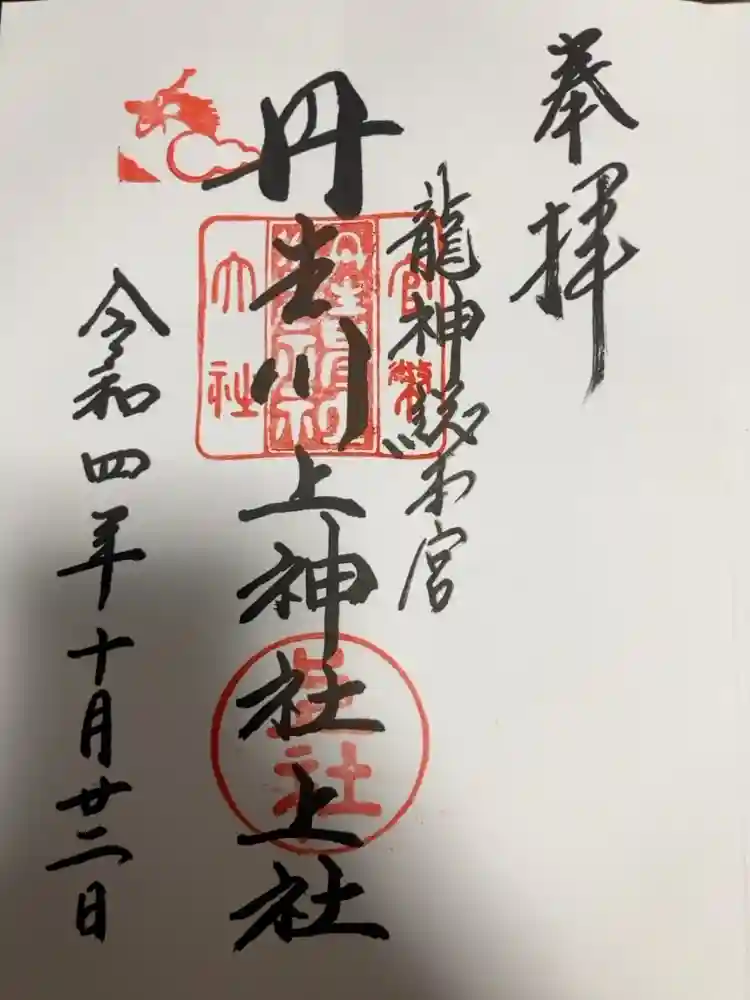 奉拝
龍神総本宮
丹生川上神社上社
令和四年十月廿二日
官幣
大社
上社